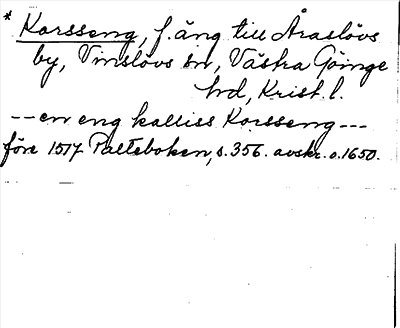 * Korsseng, f. äng till Åraslövs
by, Vinslövs sn, Västra Göinge
hd, Krist. l.
-- en eng kalliss Korsseng ---
före 1517 Palteboken, s. 356. avskr. o. 1650.